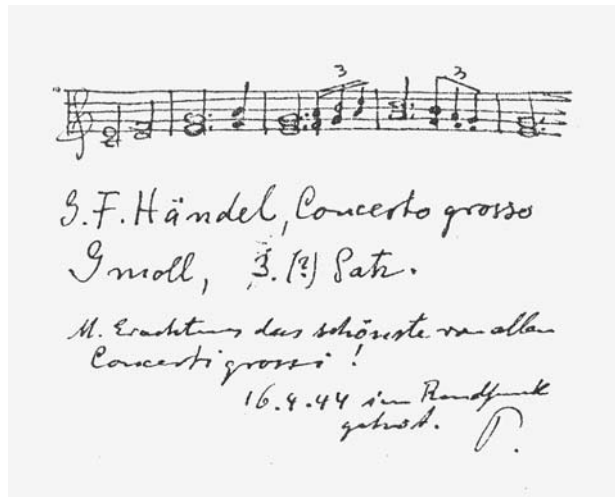 3
3
G. F. Händel, Concerto grosso
G moll, 3. (?) Satz.
M. Erachtens das schönste von allen
Concerti grossi!
16.4.44 im Rundfunk
gehört. P.